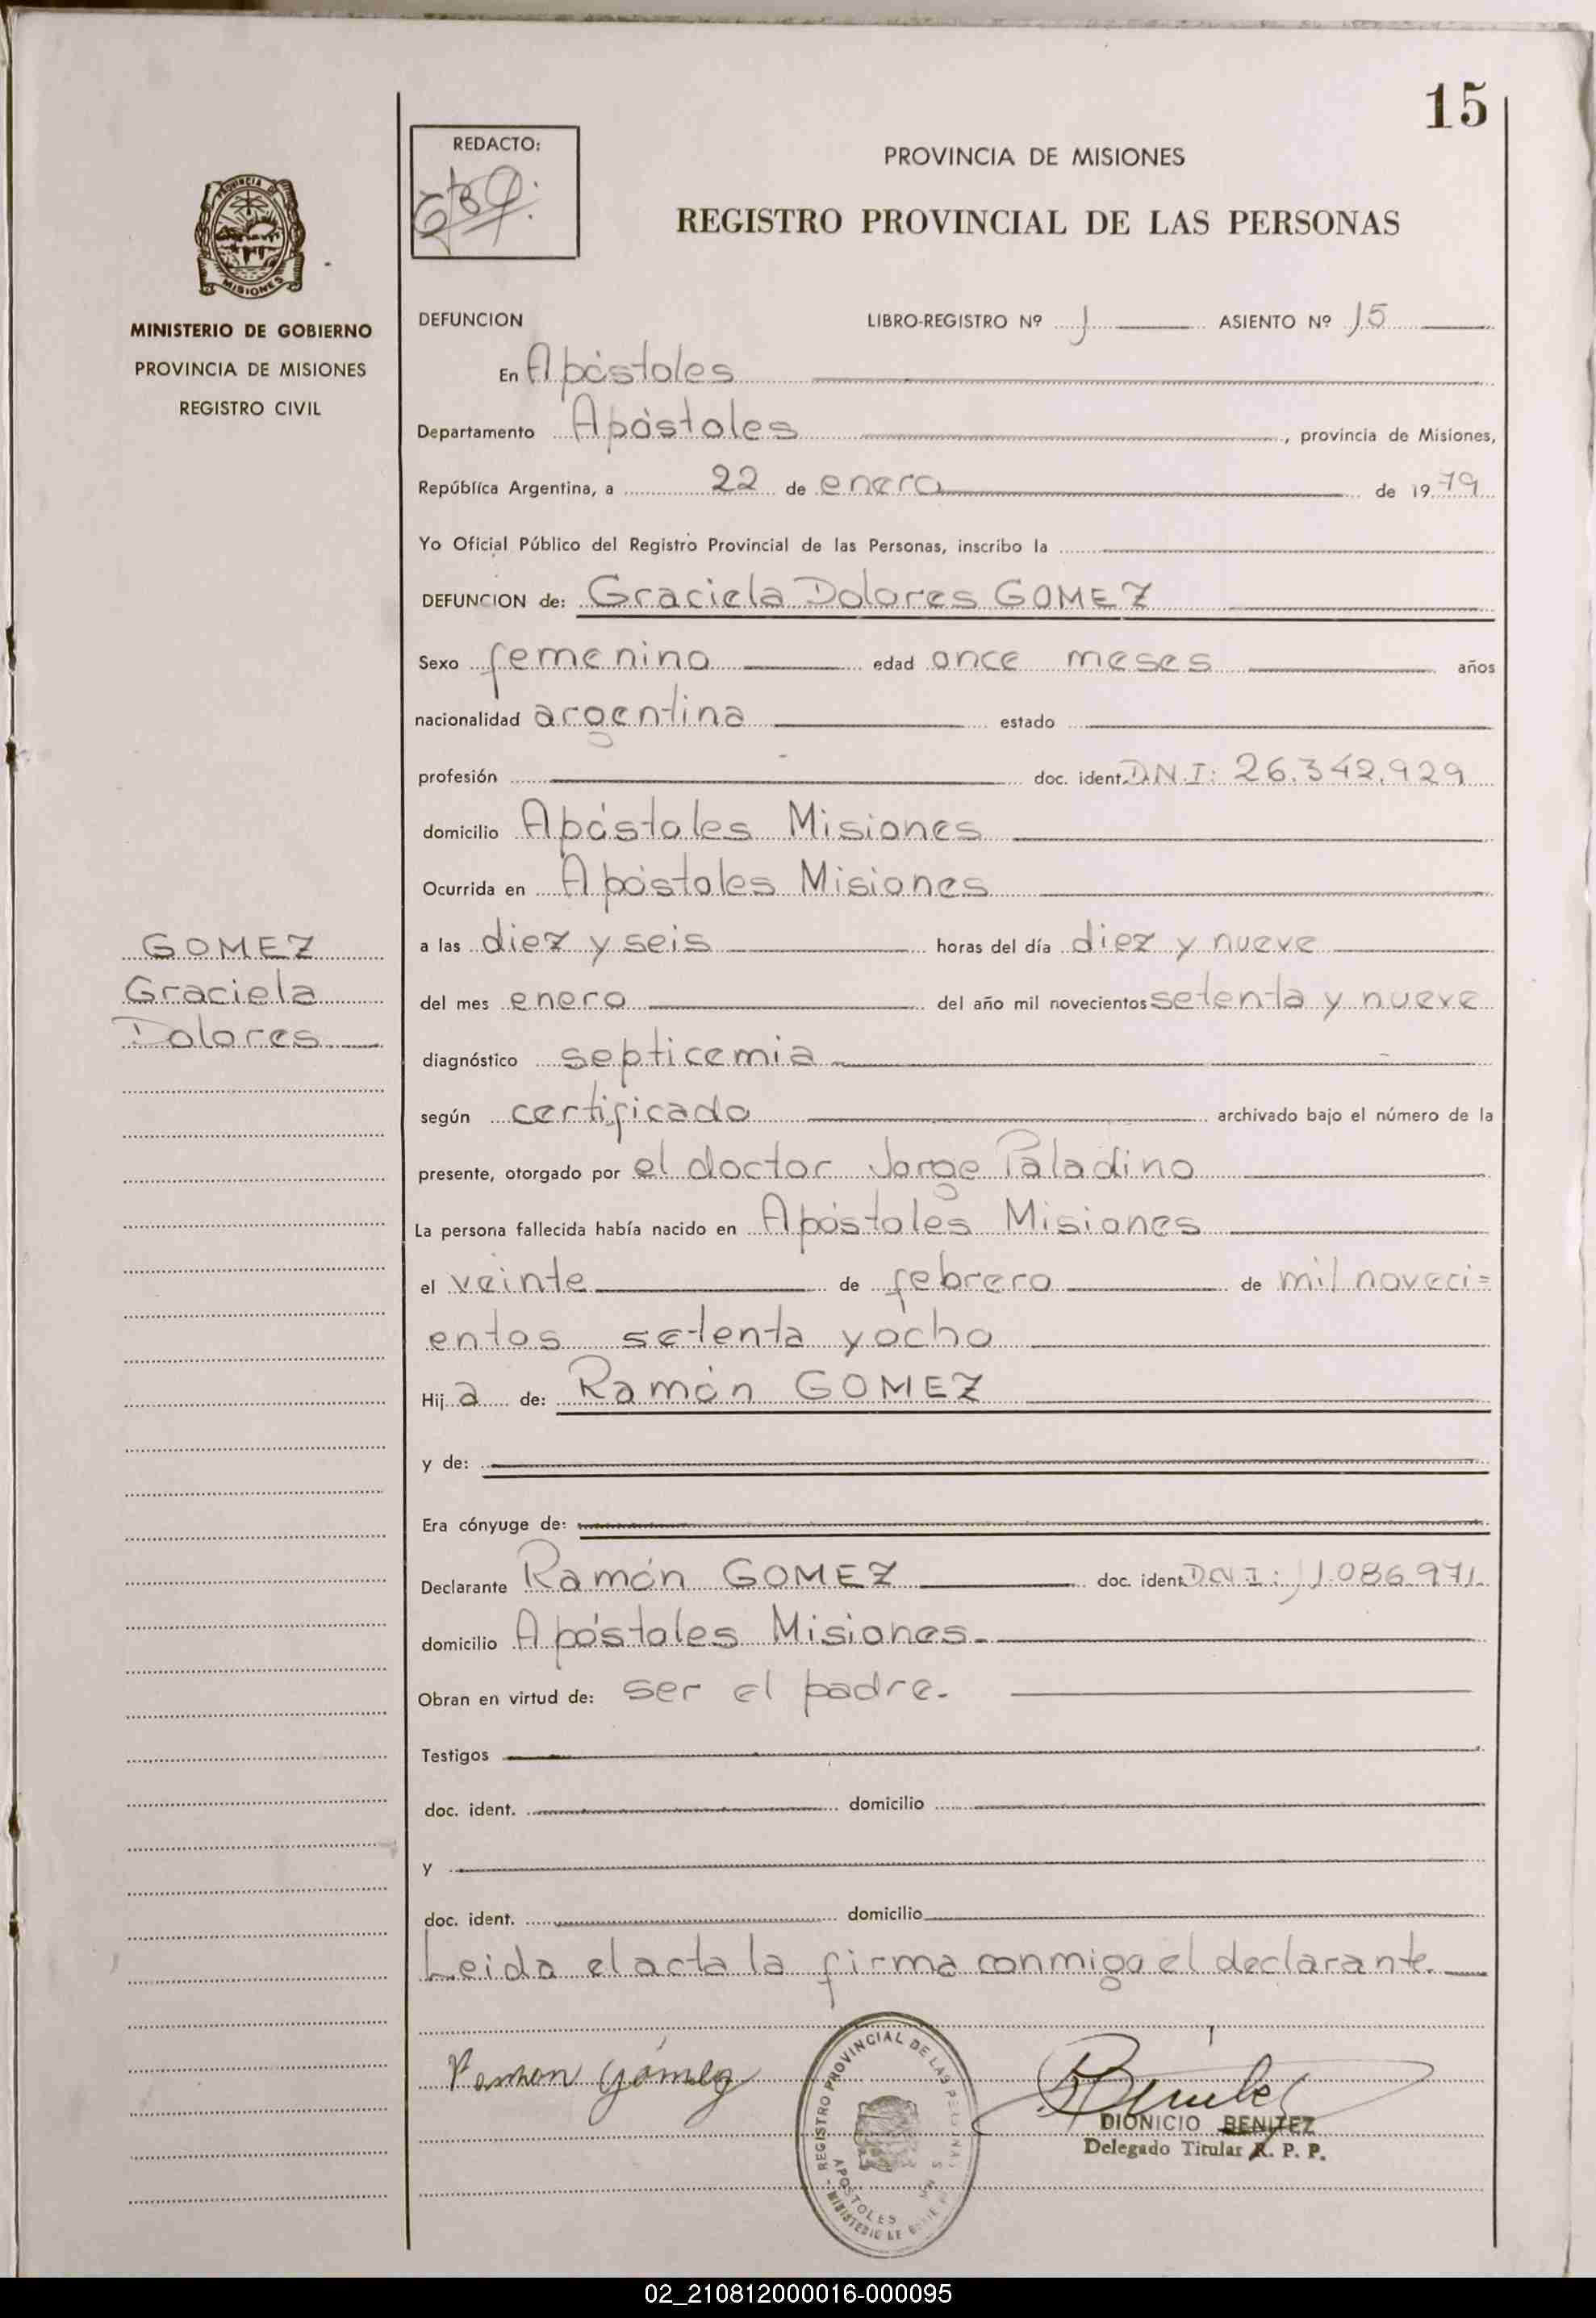 15
REDACTO:
PROVINCIA DE MISIONES
REGISTRO PROVINCIAL DE LAS PERSONAS
PROVINCIA DE
MISIONES
MINISTERIO DE GOBIERNO
PROVINCIA DE MISIONES
REGISTRO CIVIL
DEFUNCION LIBRO-REGISTRO Nº 1 ASIENTO Nº 15
En Apóstoles
Departamento Apóstoles, provincia de Misiones,
República Argentina, a 22 de enero de 1979
Yo Oficial Público del Registro Provincial de las Personas, inscribo la
DEFUNCION de: Graciela Dolores GOMEZ
Sexo femenino edad once meses años
nacionalidad argentina estado
profesión doc. ident. D.N.I: 26.342.929
domicilio Apóstoles Misiones
Ocurrida en Apóstoles Misiones
GOMEZ
Graciela
Dolores
a las diez y seis horas del día diez y nueve
del mes enero del año mil novecientos setenta y nueve
diagnóstico septicemia
según certificado archivado bajo el número de la
presente, otorgado por el doctor Jorge Paladino
La persona fallecida había nacido en Apóstoles Misiones
el veinte de febrero de mil noveci=
entos setenta y ocho
Hija de: Ramón GOMEZ
y de:
Era cónyuge de:
Declarante Ramón GOMEZ doc. ident. D.N.I: 11.086.971
domicilio Apóstoles Misiones.
Obran en virtud de: ser el padre.
Testigos
doc. ident. domicilio
y
doc. ident. domicilio
Leida el acta la firma conmigo el declarante.
Ramon Gómez
REGISTRO PROVINCIAL DE LAS
APOSTOLES
MINISTERIO DE
Benitez
DIONICIO BENITEZ
Delegado Titular R. P. P.
02_210812000016-000095